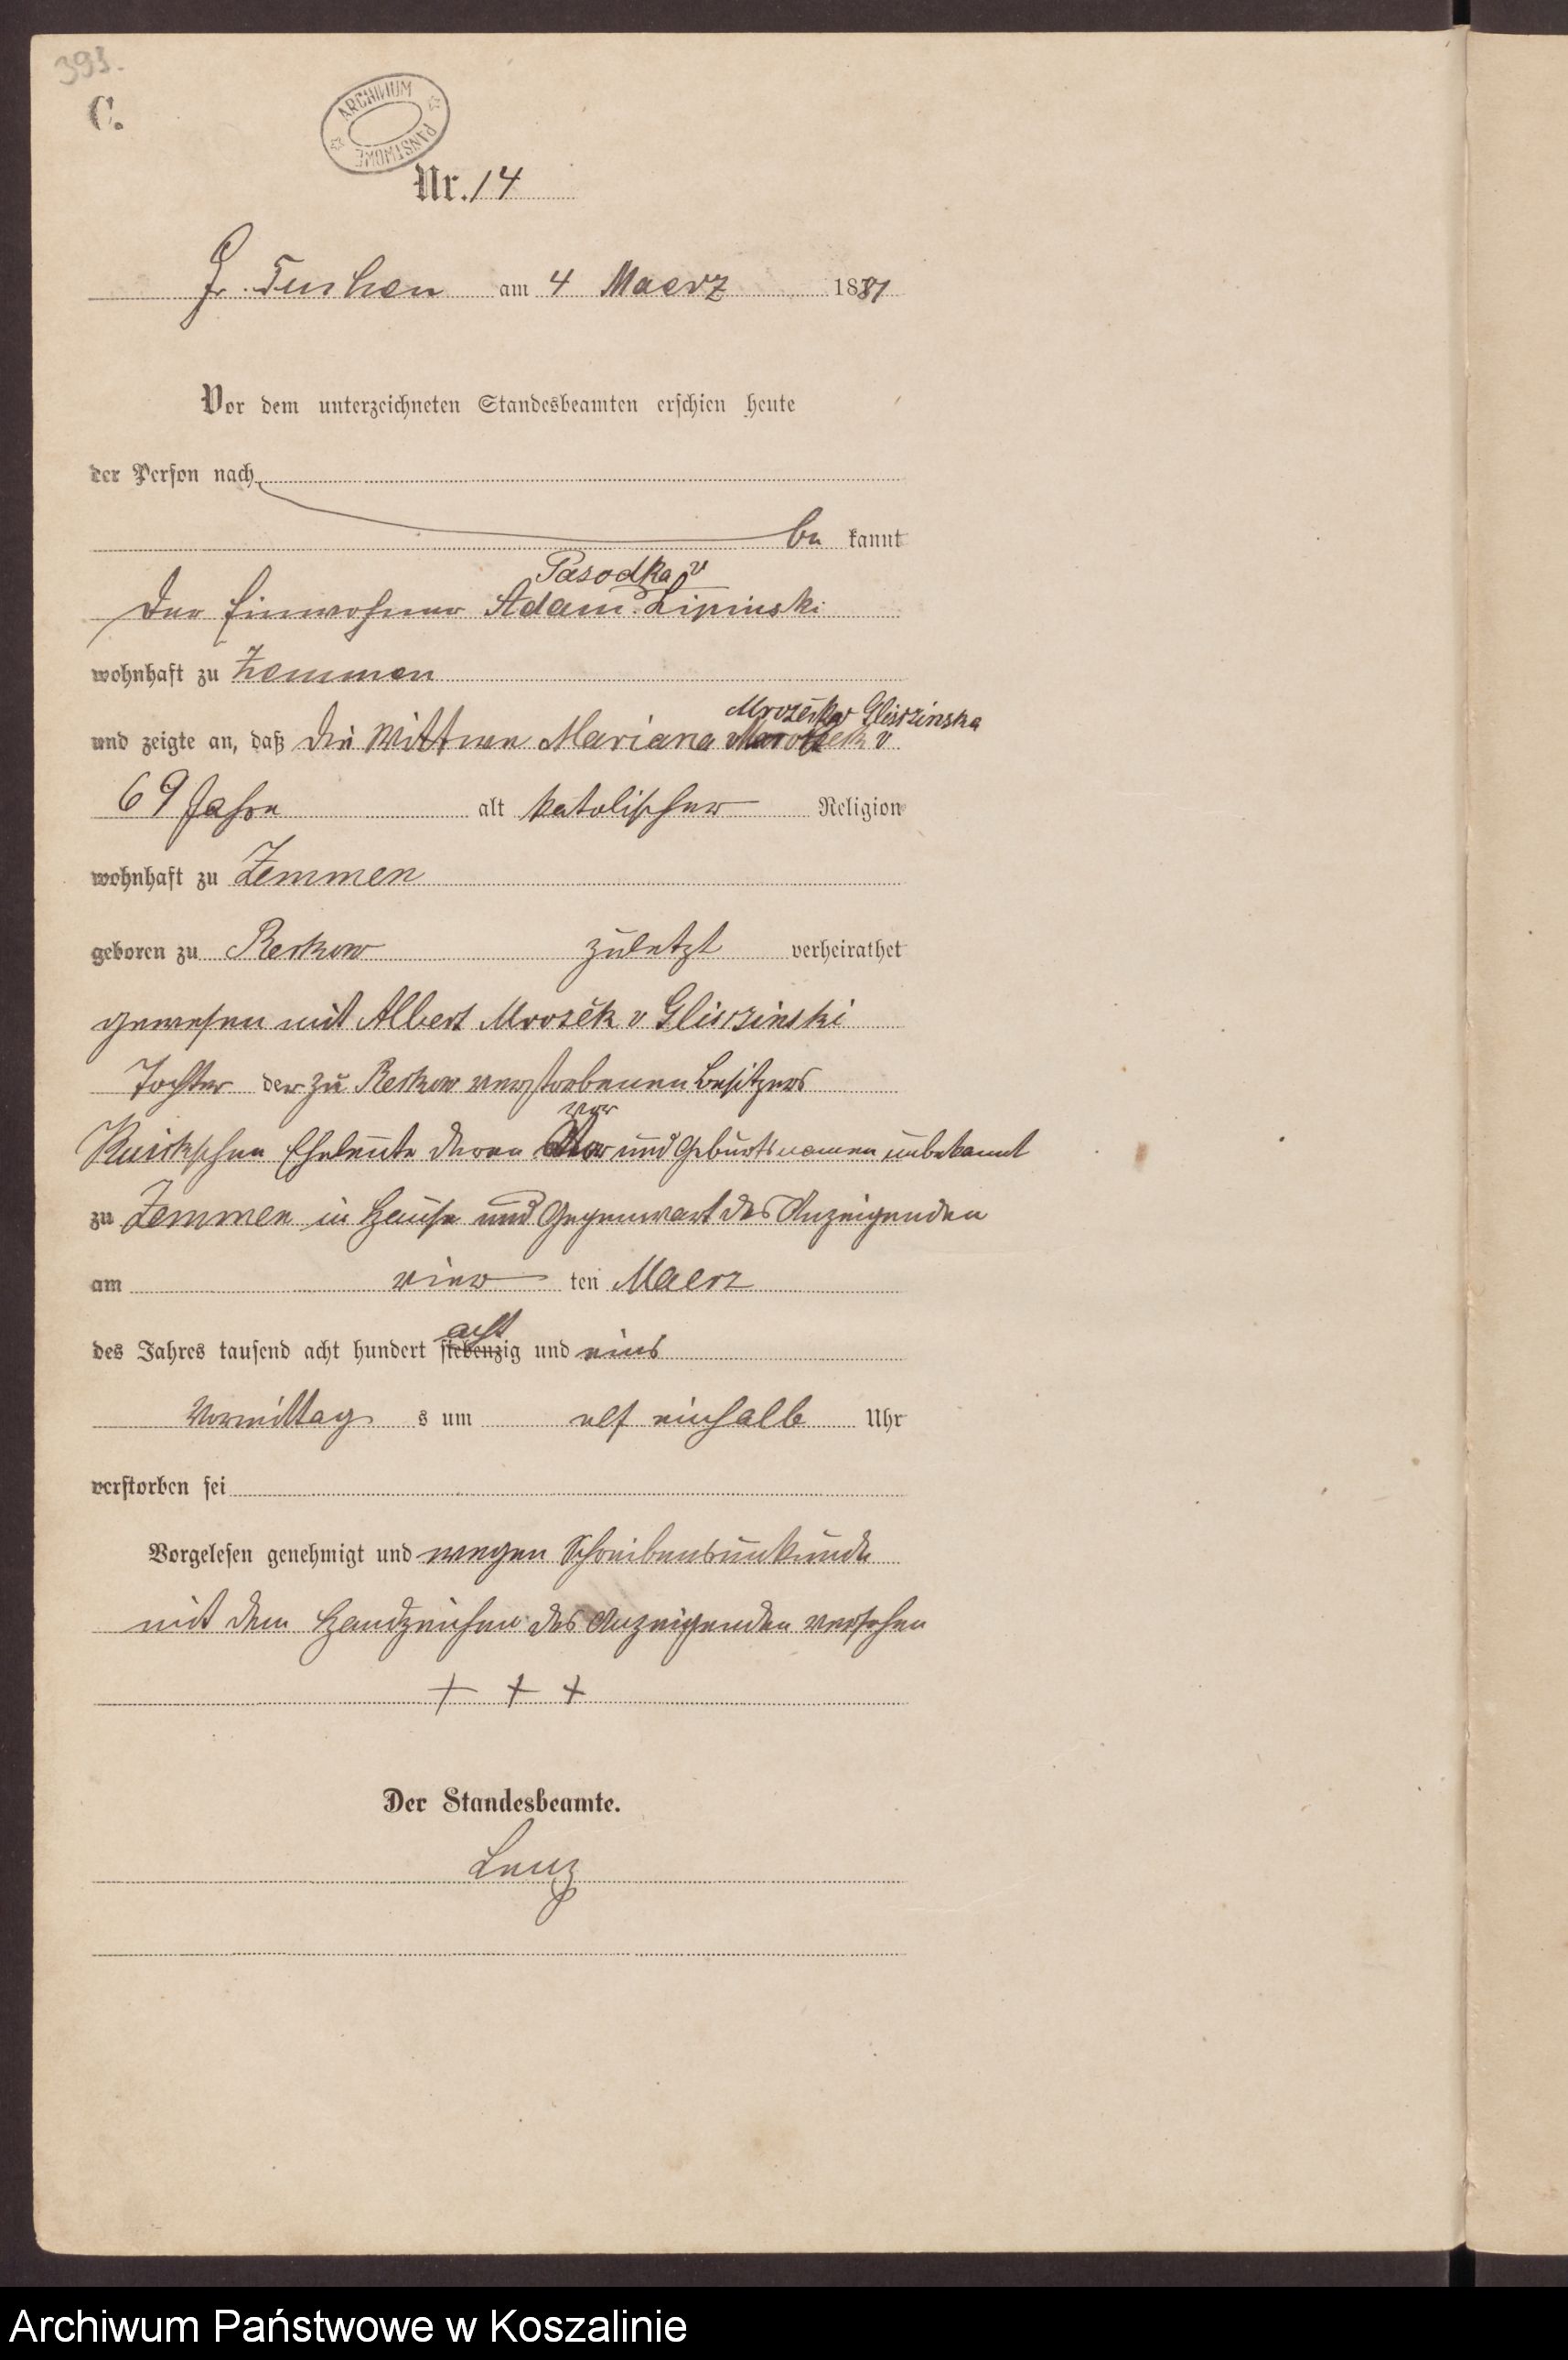 393.
C.
ARCHIWUM PAŃSTWOWE
Nr. 14
Gr. Tuchen am 4 Maerz 1881
Vor dem unterzeichneten Standesbeamten erschien heute
der Person nach
be kannt
Pasodka v
Der Einwohner Adam Lipinski
wohnhaft zu Zemmen
Mrozék v Gliszinska
und zeigte an, daß die Wittwe Mariana v
69 Jahre alt katolischer Religion
wohnhaft zu Zemmen
geboren zu Reckow zuletzt verheirathet
gewesen mit Albert Mrosék v Gliszinski
Tochter der zu Reckow verstorbenen Besitzers
vor
Eheleute deren und Geburtsnamen unbekannt
zu Zemmen in Hause und Gegenwart des Anzeigenden
am vier ten Maerz
acht
des Jahres tausend acht hundert siebenzig und eins
Vormittag s um elf einhalb Uhr
verstorben sei
Vorgelesen genehmigt und wegen Schreibensunkunde
mit dem Handzeichen des Anzeigenden versehen
+ + +
Der Standesbeamte.
Lenz
Archiwum Państwowe w Koszalinie